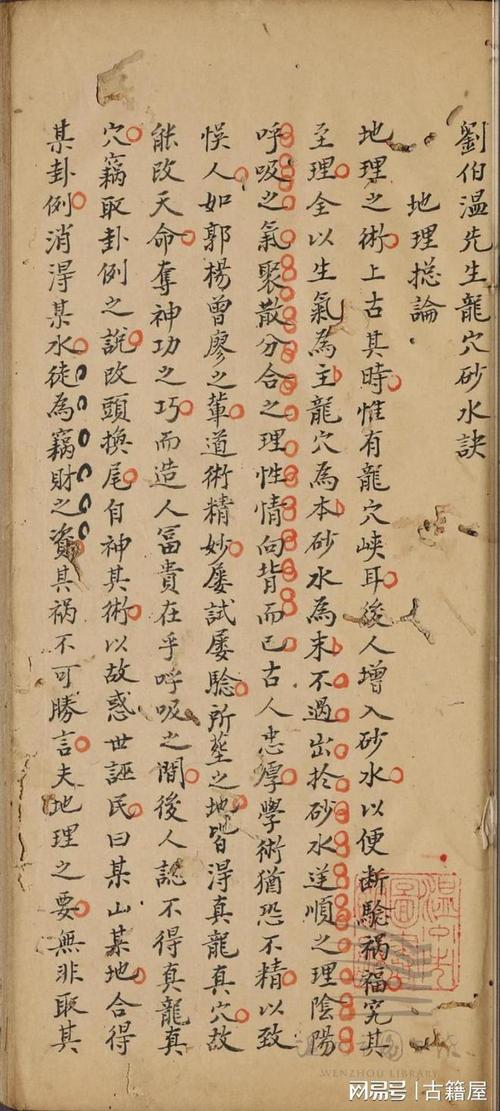 劉伯温先生龍穴砂水訣
地理捴論
地理之術上古其時惟有龍穴峡耳後人增入砂水以便斷驗禍福究其
至理全以生氣為主龍穴為本砂水為末不過出於砂水逆順之理陰陽
呼吸之氣聚散分合之理性情向背而已古人忠厚學術猶恐不精以致
悮人如郭楊曾廖之輩道術精妙屡試屡驗所塟之地皆淂真龍真穴故
能改天命奪神功之巧而造人冨貴在乎呼吸之間後人認不得真龍真
穴竊取卦例之說改頭換尾自神其術以故惑世誣民曰某山某地合得
某卦例消淂某水徒為竊財之資其禍不可勝言夫地理之要無非取其
WENZHOU LIBRARY
网易号 | 古籍屋